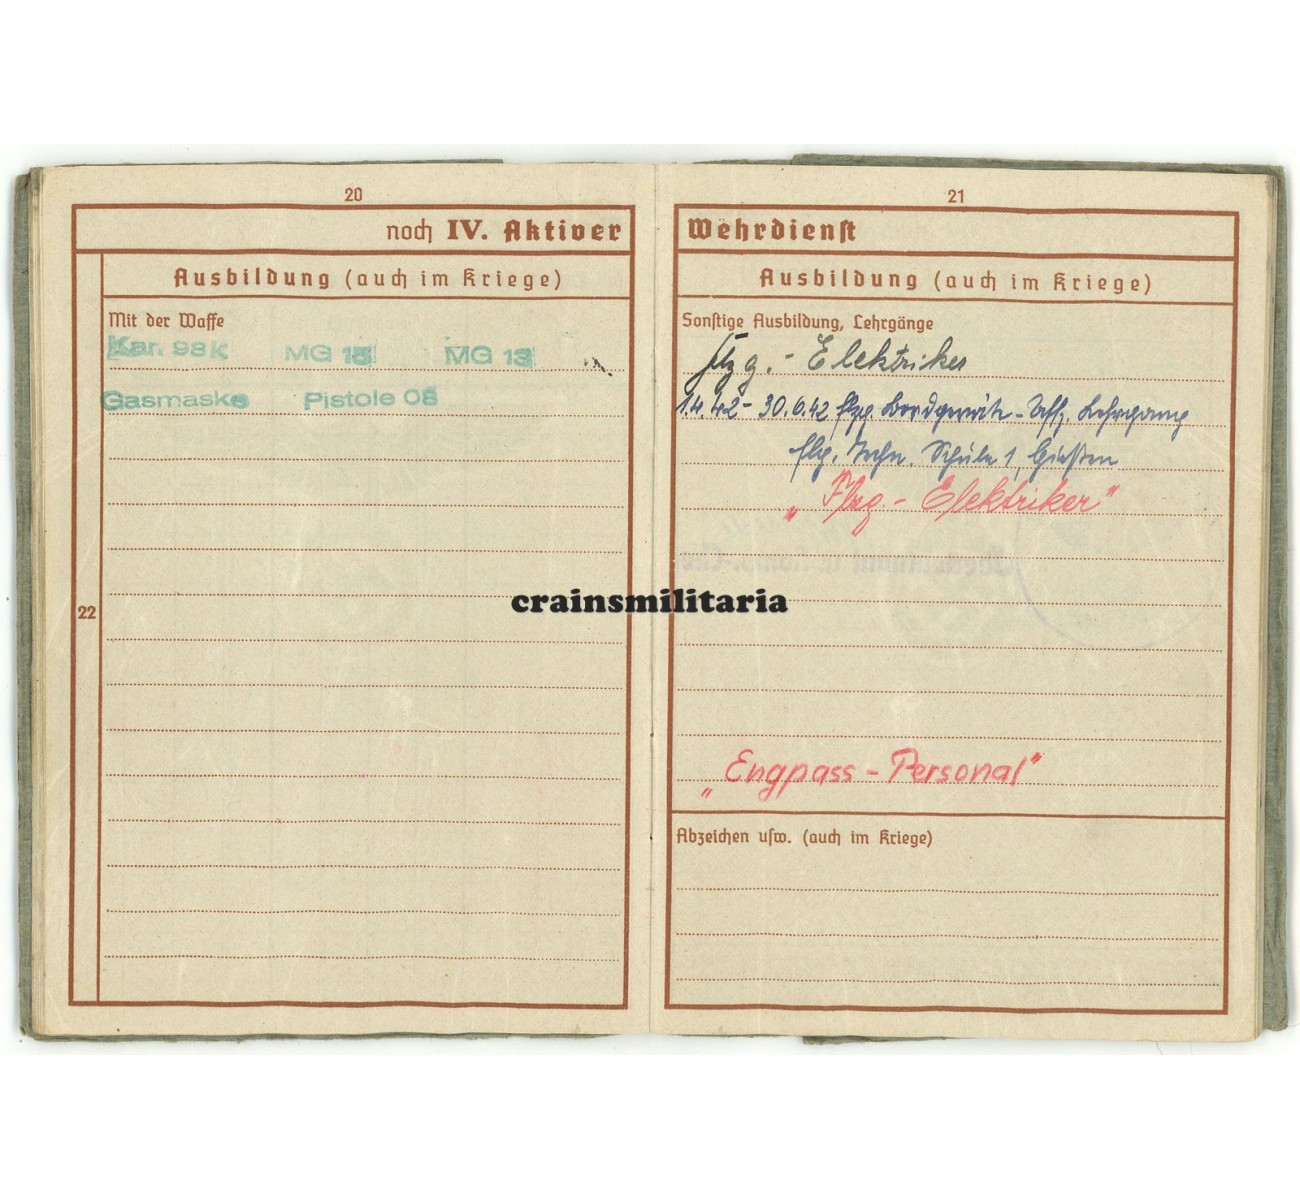 20
noch IV. Aktiver
Ausbildung (auch im Kriege)
Mit der Waffe
Kar. 98k MG 15 MG 13
Gasmaske Pistole 08
22
21
Wehrdienst
Ausbildung (auch im Kriege)
Sonstige Ausbildung, Lehrgänge
Flzg.-Elektriker
1.4.42-30.6.42 flzg. Bordgerät-Uffz. Lehrgang
flg. Techn. Schule 1, Gießen
"Flzg-Elektriker"
crainsmilitaria
"Engpass-Personal"
Abzeichen usw. (auch im Kriege)